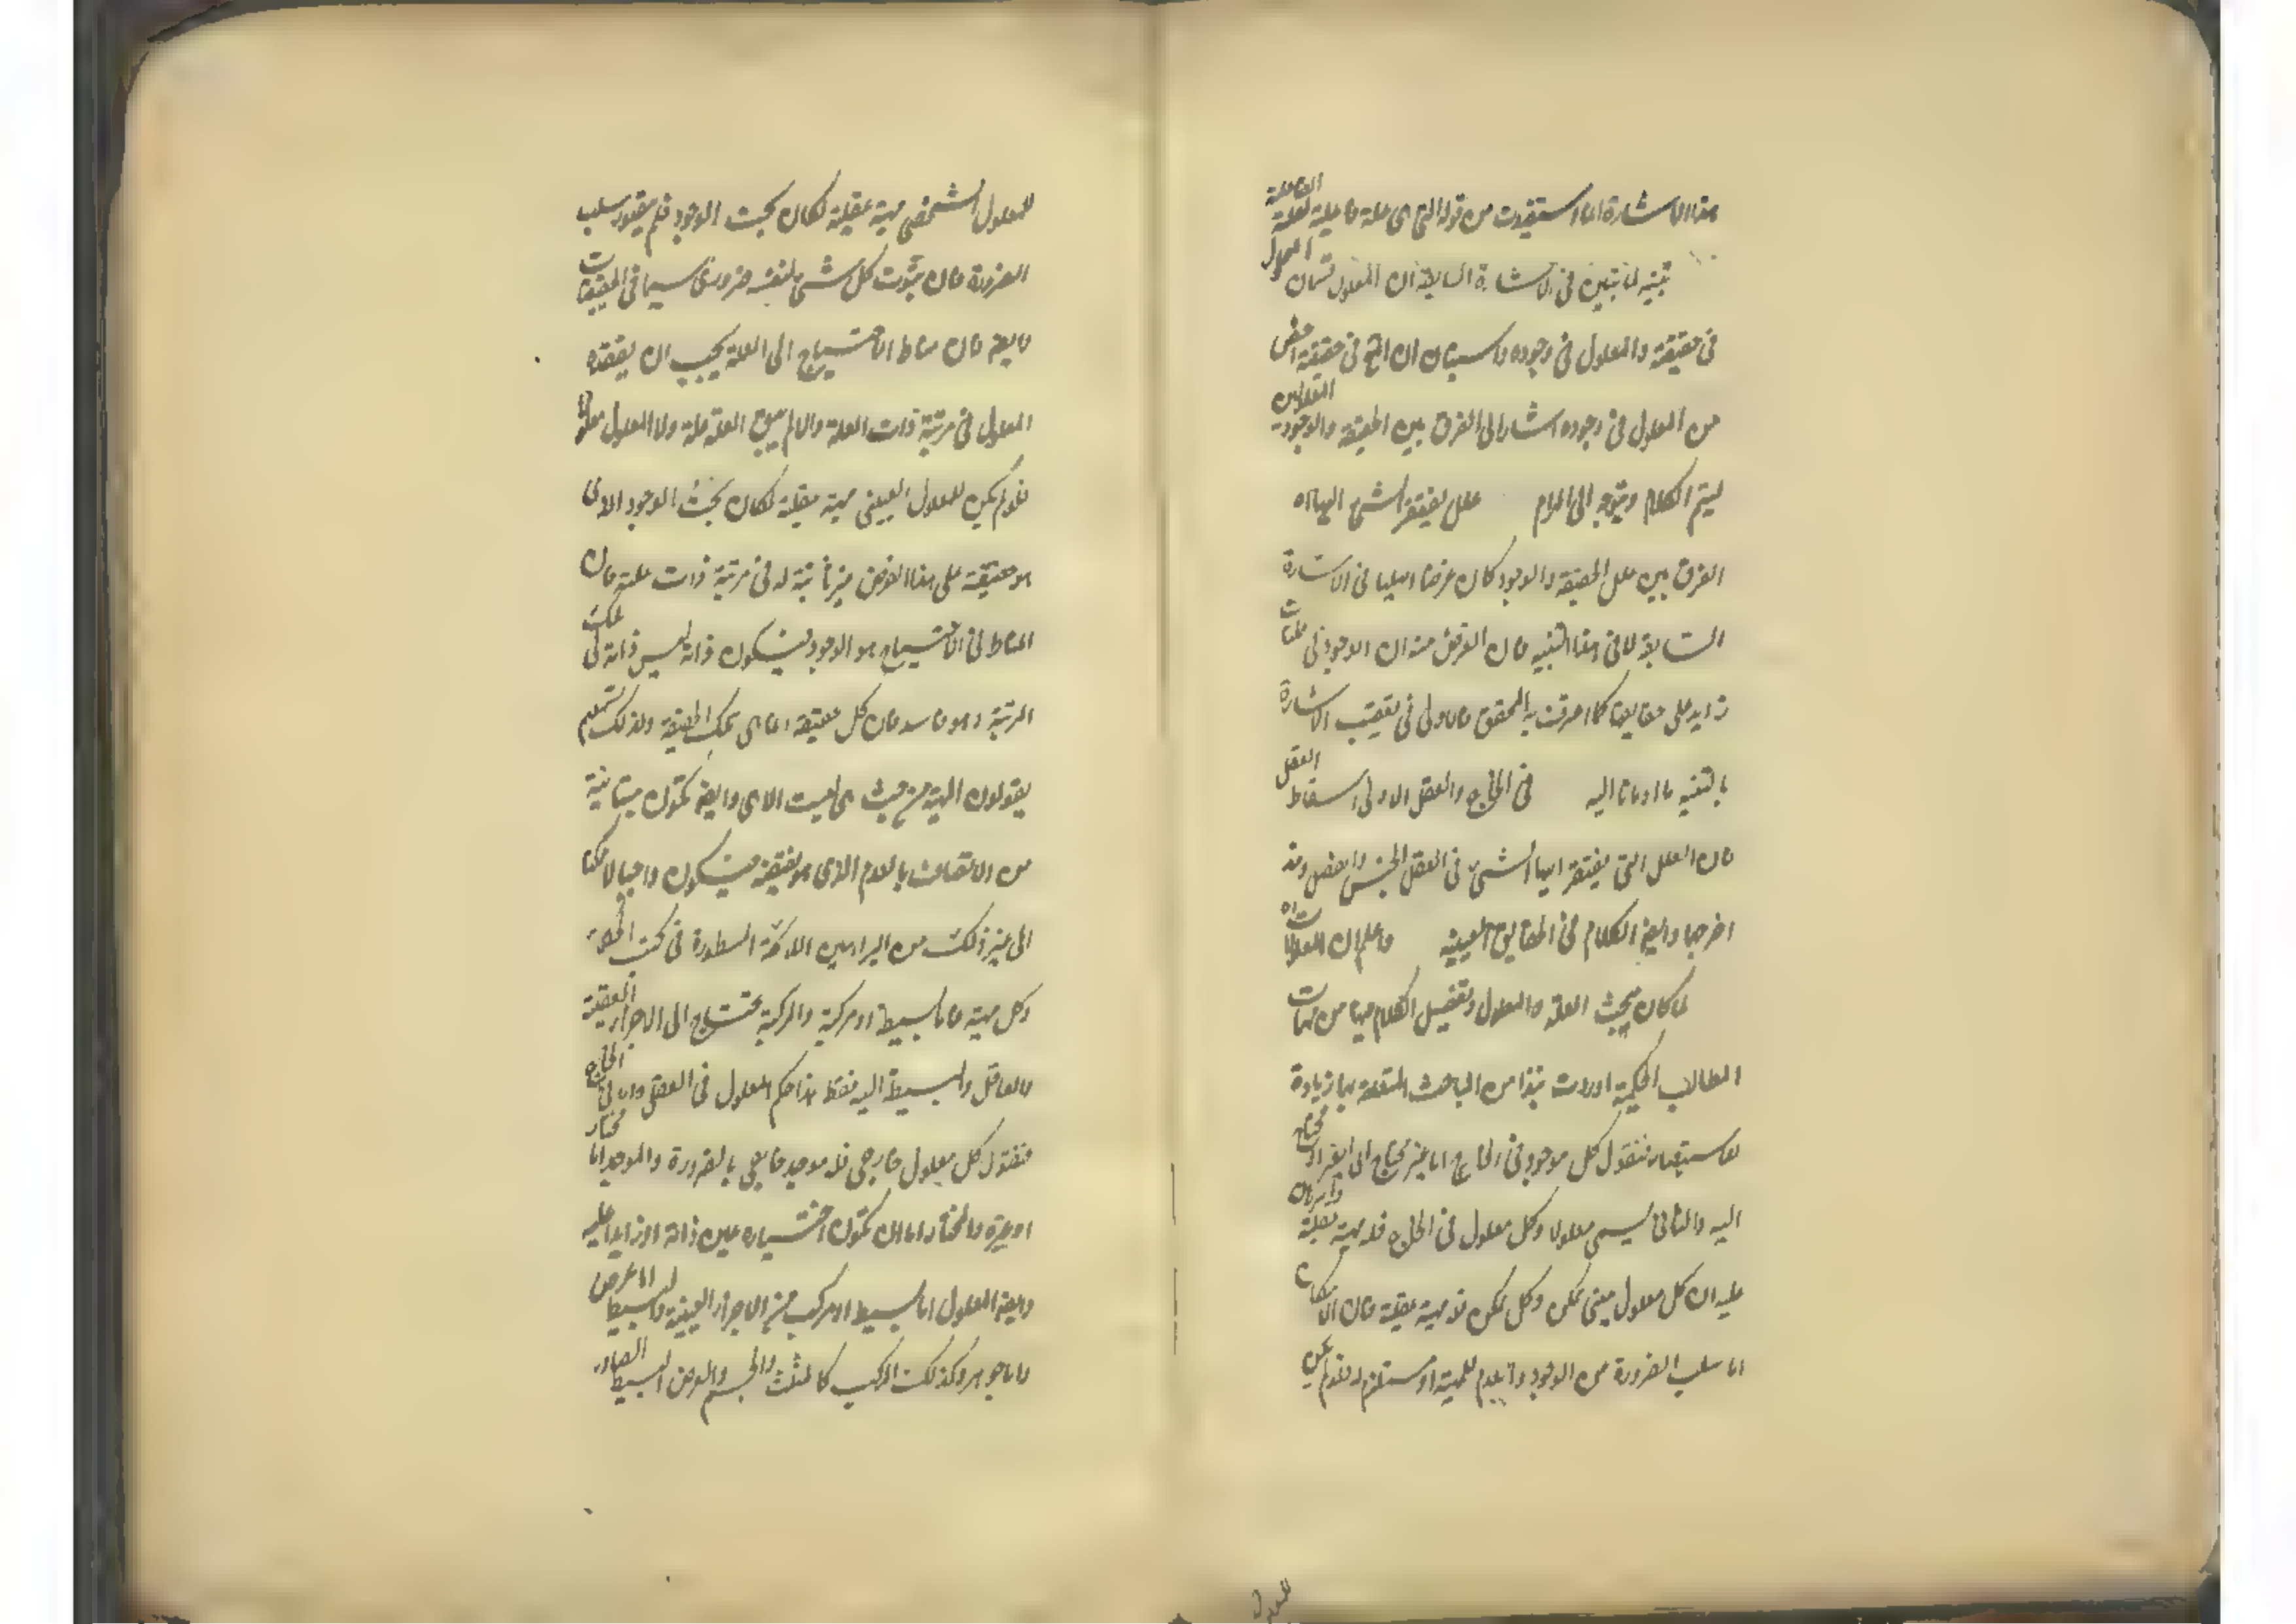 هذا الاشارة انما استفيدت من قوله التي هي علة فاعلية لعلة الفاعلية
تنبيه لما تبين في الاشارة السابقة ان المعلول قسمان المعلول
في حقيقته والمعلول في وجوده
من المعلول في وجوده اشار الى الفرق بين الحقيقة والوجود
ليتم الكلام ويتوجه الى المرام علل يفتقر الشئ اليها اه
الفرق بين علل الحقيقة والوجود كان عرضا اصليا في الاشارة
السابقة لا في هذا التنبيه فان الغرض منه ان الوجود في
زايد على حقايقها كما اعترفت به المحقق فالاولى في تعقيب الاشارة
بالتنبيه ما اومانا اليه في الخارج والعقل الاولى اسقاط العقل
فان العلل التي يفتقر اليها الشئ في العقل الجنس والفصل وقد
اخرجها وايضا الكلام في الحقايق العينية واعلم ان المعلولات
لما كان مبحث العلة والمعلول وتفصيل الكلام فيها من مهمات
المطالب الحكمية اوردت نبذا من المباحث المتعلقة بها زيادة
للاستبصار فنقول كل موجود في الخارج اما غير محتاج الى الغير او محتاج
اليه والثاني يسمى معلولا وكل معلول في الخارج فله مهية عقلية والبرهان
عليه ان كل معلول عيني ممكن وكل ممكن فله مهية عقلية فان الامكان
اما سلب الضرورة من الوجود والعدم للمهية او مستلزم له فلو لم يكن
للمعلول الشخصي مهية عقلية لكان بحت الوجود فلم يتصور سلب
الضرورة فان ثبوت كل شئ لنفسه ضروري سيما في الحقيقيات
وايضا فان مناط الاحتياج الى العلة يجب ان يفقده
المعلول في مرتبة ذات العلة والا لم يبق العلة علة ولا المعلول معلولا
فلو لم يكن للمعلول العيني مهية عقلية لكان بحت الوجود الذي
هو حقيقته على هذا الفرض غير ثابتة له في مرتبة ذات علته فان
المناط في الاحتياج هو الوجود فيكون ذاته ليس ذاته في تلك
المرتبة وهو فاسد فان كل حقيقة انما هي تلك الحقيقة ولذلك تسمعهم
يقولون المهية من حيث هي ليست الا هي وايضا تكون متابية
من الاتصاف بالعدم الذي هو نقيضه فيكون واجبا لا ممكنا
الى غير ذلك من البراهين اللائحة المسطورة في كتب الحكمة
وكل مهية فاما بسيطة او مركبة والمركبة تحتاج الى الاجزاء العقلية
والفاعل والبسيطة اليه فقط هذا حكم المعلول في العقل واما في الخارج
فنقول كل معلول خارجي فله موجد خارجي بالضرورة والموجد اما مختار
او غيره والمختار اما ان تكون اختياره عين ذاته او زايدا عليه
وايضا المعلول اما بسيط او مركب من الاجزاء العينية والبسيط اما عرض
واما جوهر وكذلك المركب كالمثلث والجسم والعرض البسيط الصادر